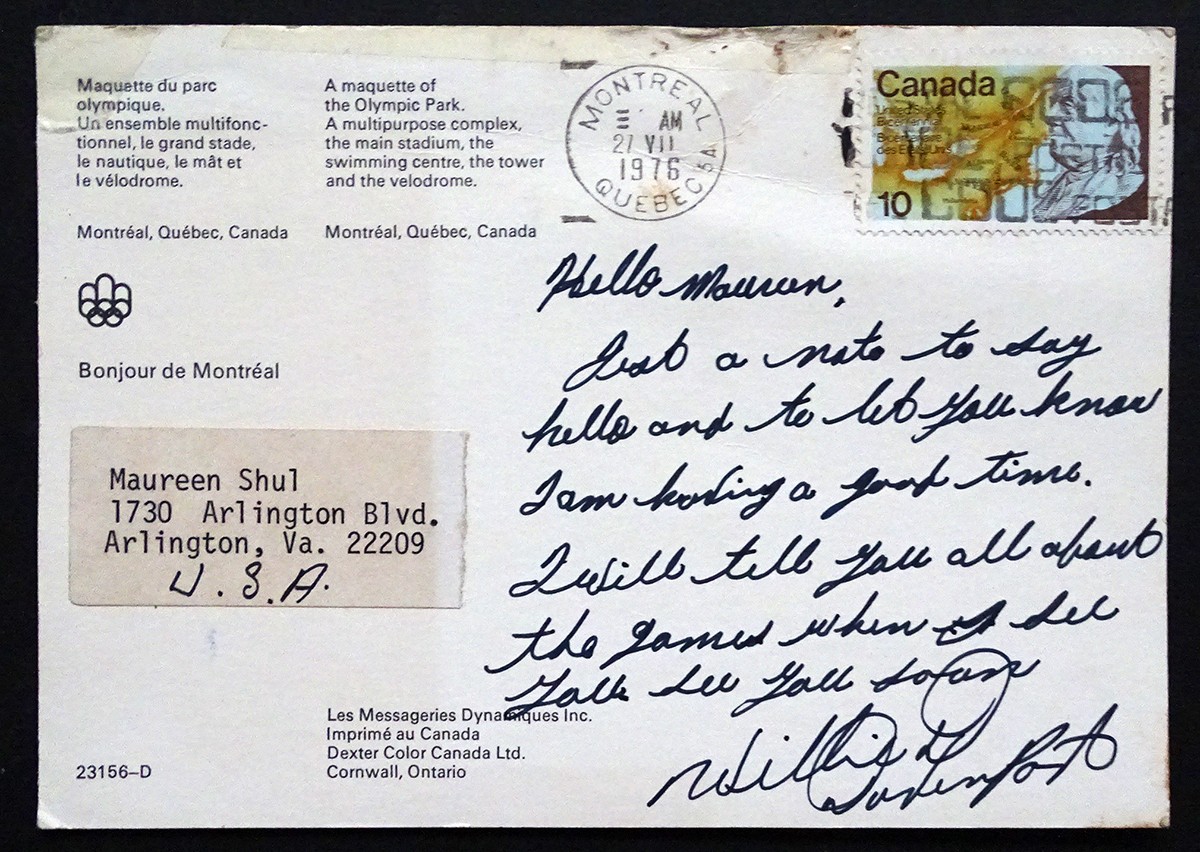 Maquette du parc
olympique.
Un ensemble multifonc-
tionnel, le grand stade,
le nautique, le mât et
le vélodrome.
Montréal, Québec, Canada
A maquette of
the Olympic Park.
A multipurpose complex,
the main stadium, the
swimming centre, the tower
and the velodrome.
Montréal, Québec, Canada
Bonjour de Montréal
Maureen Shul
1730 Arlington Blvd.
Arlington, Va. 22209
U.S.A.
Les Messageries Dynamiques Inc.
Imprimé au Canada
Dexter Color Canada Ltd.
Cornwall, Ontario
23156-D
MONTREAL
AM
27 VII
1976
QUEBEC 5A
Canada
United States
Bicentennial
Bicentenaire
des États-Unis
10
Hello Maureen,
Just a note to say
hello and to let you know
I am having a good time.
I will tell you all about
the games when I see
you. see you soon
Willie D
Davenport